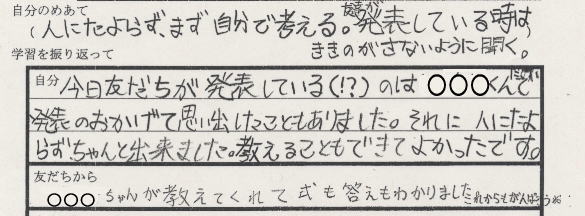 自分のめあて
(人にたよらず、まず自分で考える。友達が発表している時は
ききのがさないように聞く。)
学習を振り返って
自分 今日友だちが発表している(!?)のは〇〇〇くんで
発表のおかげで思い出けたこともありました。それに人にたよ
らずちゃんと出来ました。教えることもできてよかったです。
友だちから
〇〇〇ちゃんが教えてくれて式も答えもわかりましたこれからもがんばろうね